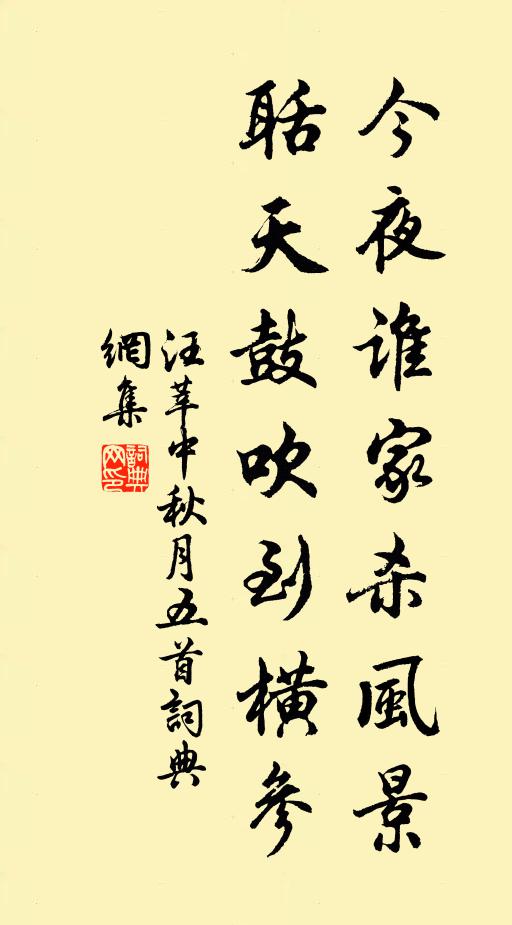 今夜谁家杀風景
聒天鼓吹到横參
汪莘中秋月五首詞典
網集
詞典網印